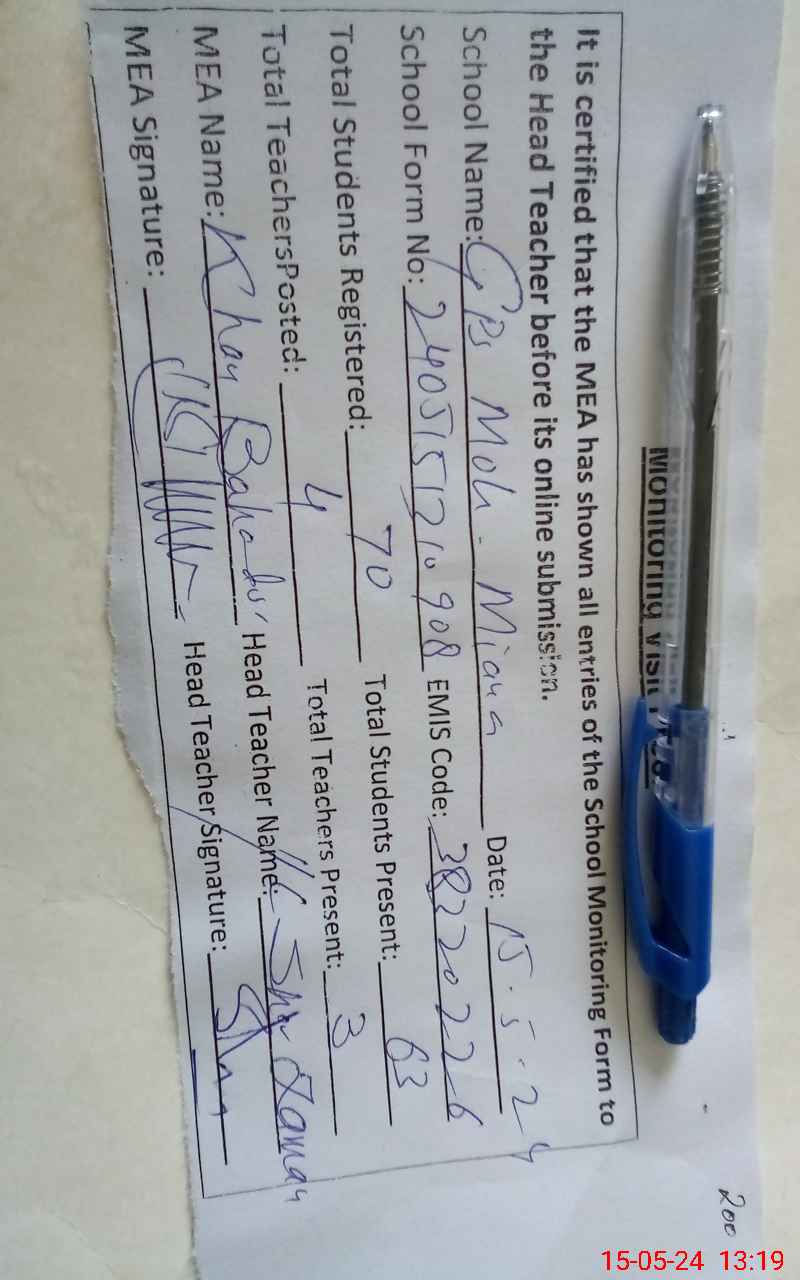 Monitoring Visit
It is certified that the MEA has shown all entries of the School Monitoring Form to
the Head Teacher before its online submission.
School Name: GPS Moh. Miana Date: 15.5.24
School Form No: 2405151210908 EMIS Code: 38220226
Total Students Registered: 70 Total Students Present: 63
Total TeachersPosted: 4 Total Teachers Present: 3
MEA Name: Khan Bahadur Head Teacher Name: Sher Zaman
MEA Signature: Head Teacher Signature:
200
15-05-24 13:19